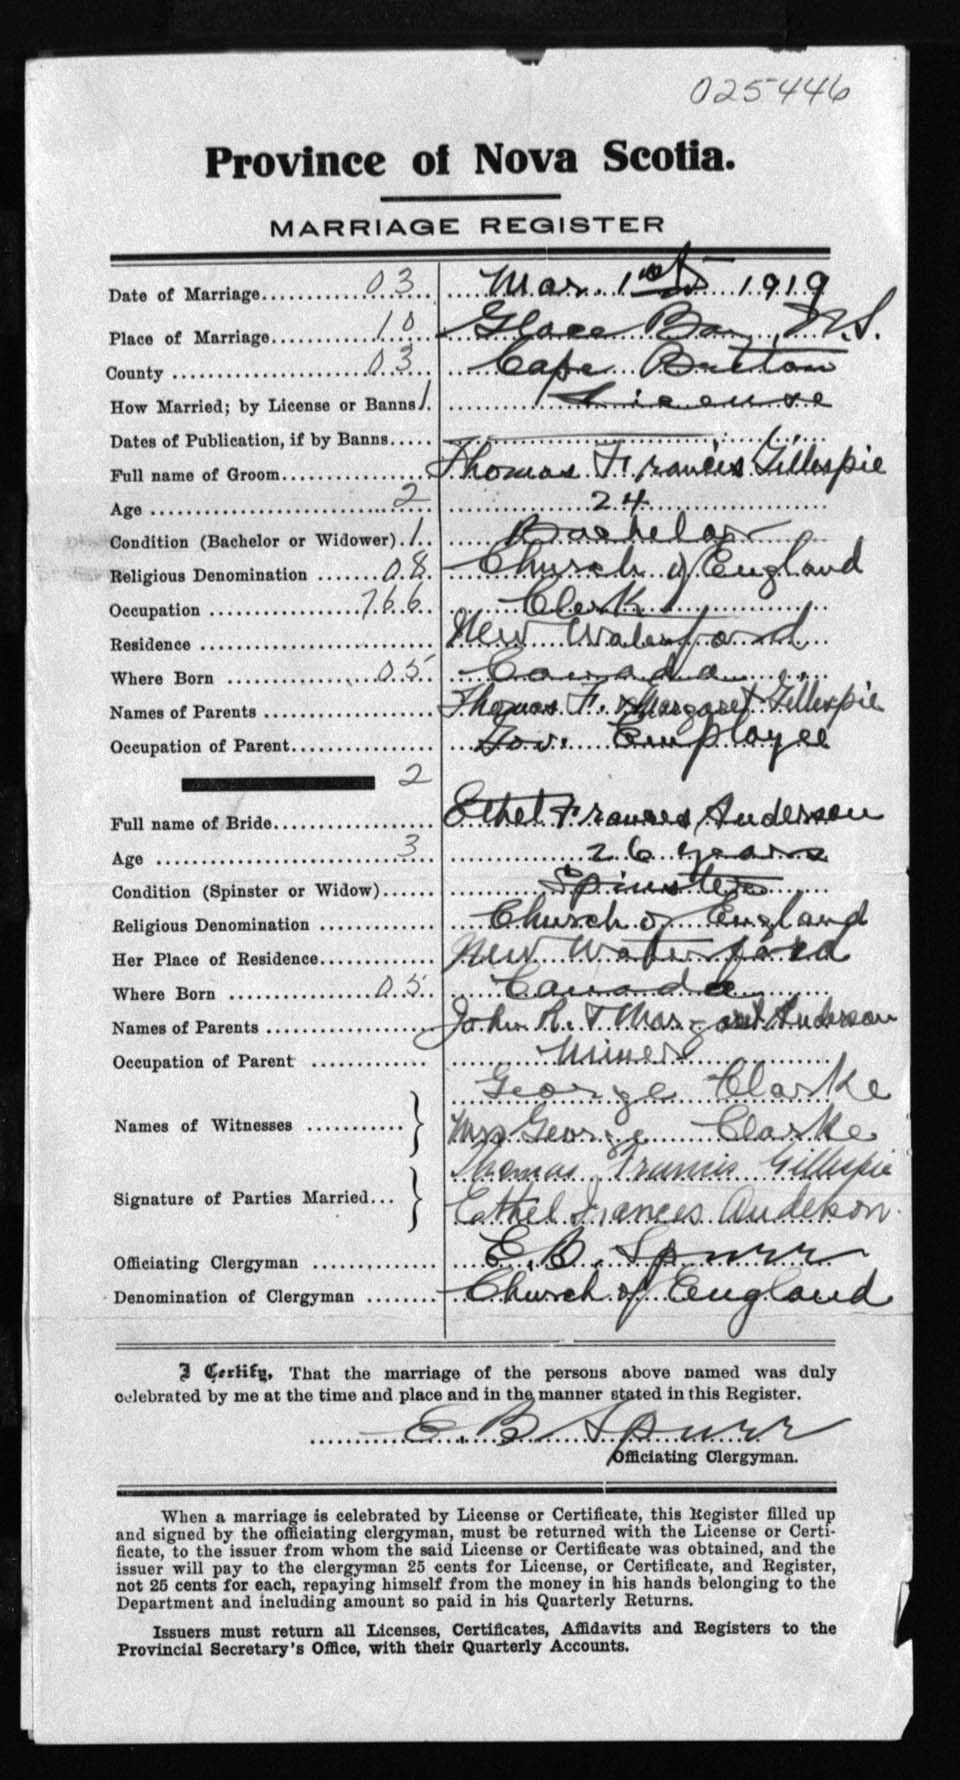 025446
Province of Nova Scotia.
MARRIAGE REGISTER
Date of Marriage 03 Mar. 1st 1919
Place of Marriage 10 Glace Bay, N.S.
County 03 Cape Bretton
How Married; by License or Banns 1. License
Dates of Publication, if by Banns
Full name of Groom Thomas Francis Gillespie
Age 2 24
Condition (Bachelor or Widower) 1. Bachelor
Religious Denomination 08 Church of England
Occupation 766 Clerk
Residence New Waterford
Where Born 05 Canada
Names of Parents Thomas F. & Margaret Gillespie
Occupation of Parent Gov. Employee
2
Full name of Bride Ethel Frances Anderson
Age 3 26 years
Condition (Spinster or Widow) Spinster
Religious Denomination Church of England
Her Place of Residence New Waterford
Where Born 05 Canada
Names of Parents John R. & Margaret Anderson
Occupation of Parent Miner
George Clarke
Names of Witnesses Mrs George Clarke
Thomas Francis Gillespie
Signature of Parties Married Ethel Frances Anderson.
Officiating Clergyman E.B. Spurr
Denomination of Clergyman Church of England
I Certify, That the marriage of the persons above named was duly
celebrated by me at the time and place and in the manner stated in this Register.
E.B. Spurr
Officiating Clergyman.
When a marriage is celebrated by License or Certificate, this Register filled up
and signed by the officiating clergyman, must be returned with the License or Certi-
ficate, to the issuer from whom the said License or Certificate was obtained, and the
issuer will pay to the clergyman 25 cents for License, or Certificate, and Register,
not 25 cents for each, repaying himself from the money in his hands belonging to the
Department and including amount so paid in his Quarterly Returns.
Issuers must return all Licenses, Certificates, Affidavits and Registers to the
Provincial Secretary's Office, with their Quarterly Accounts.